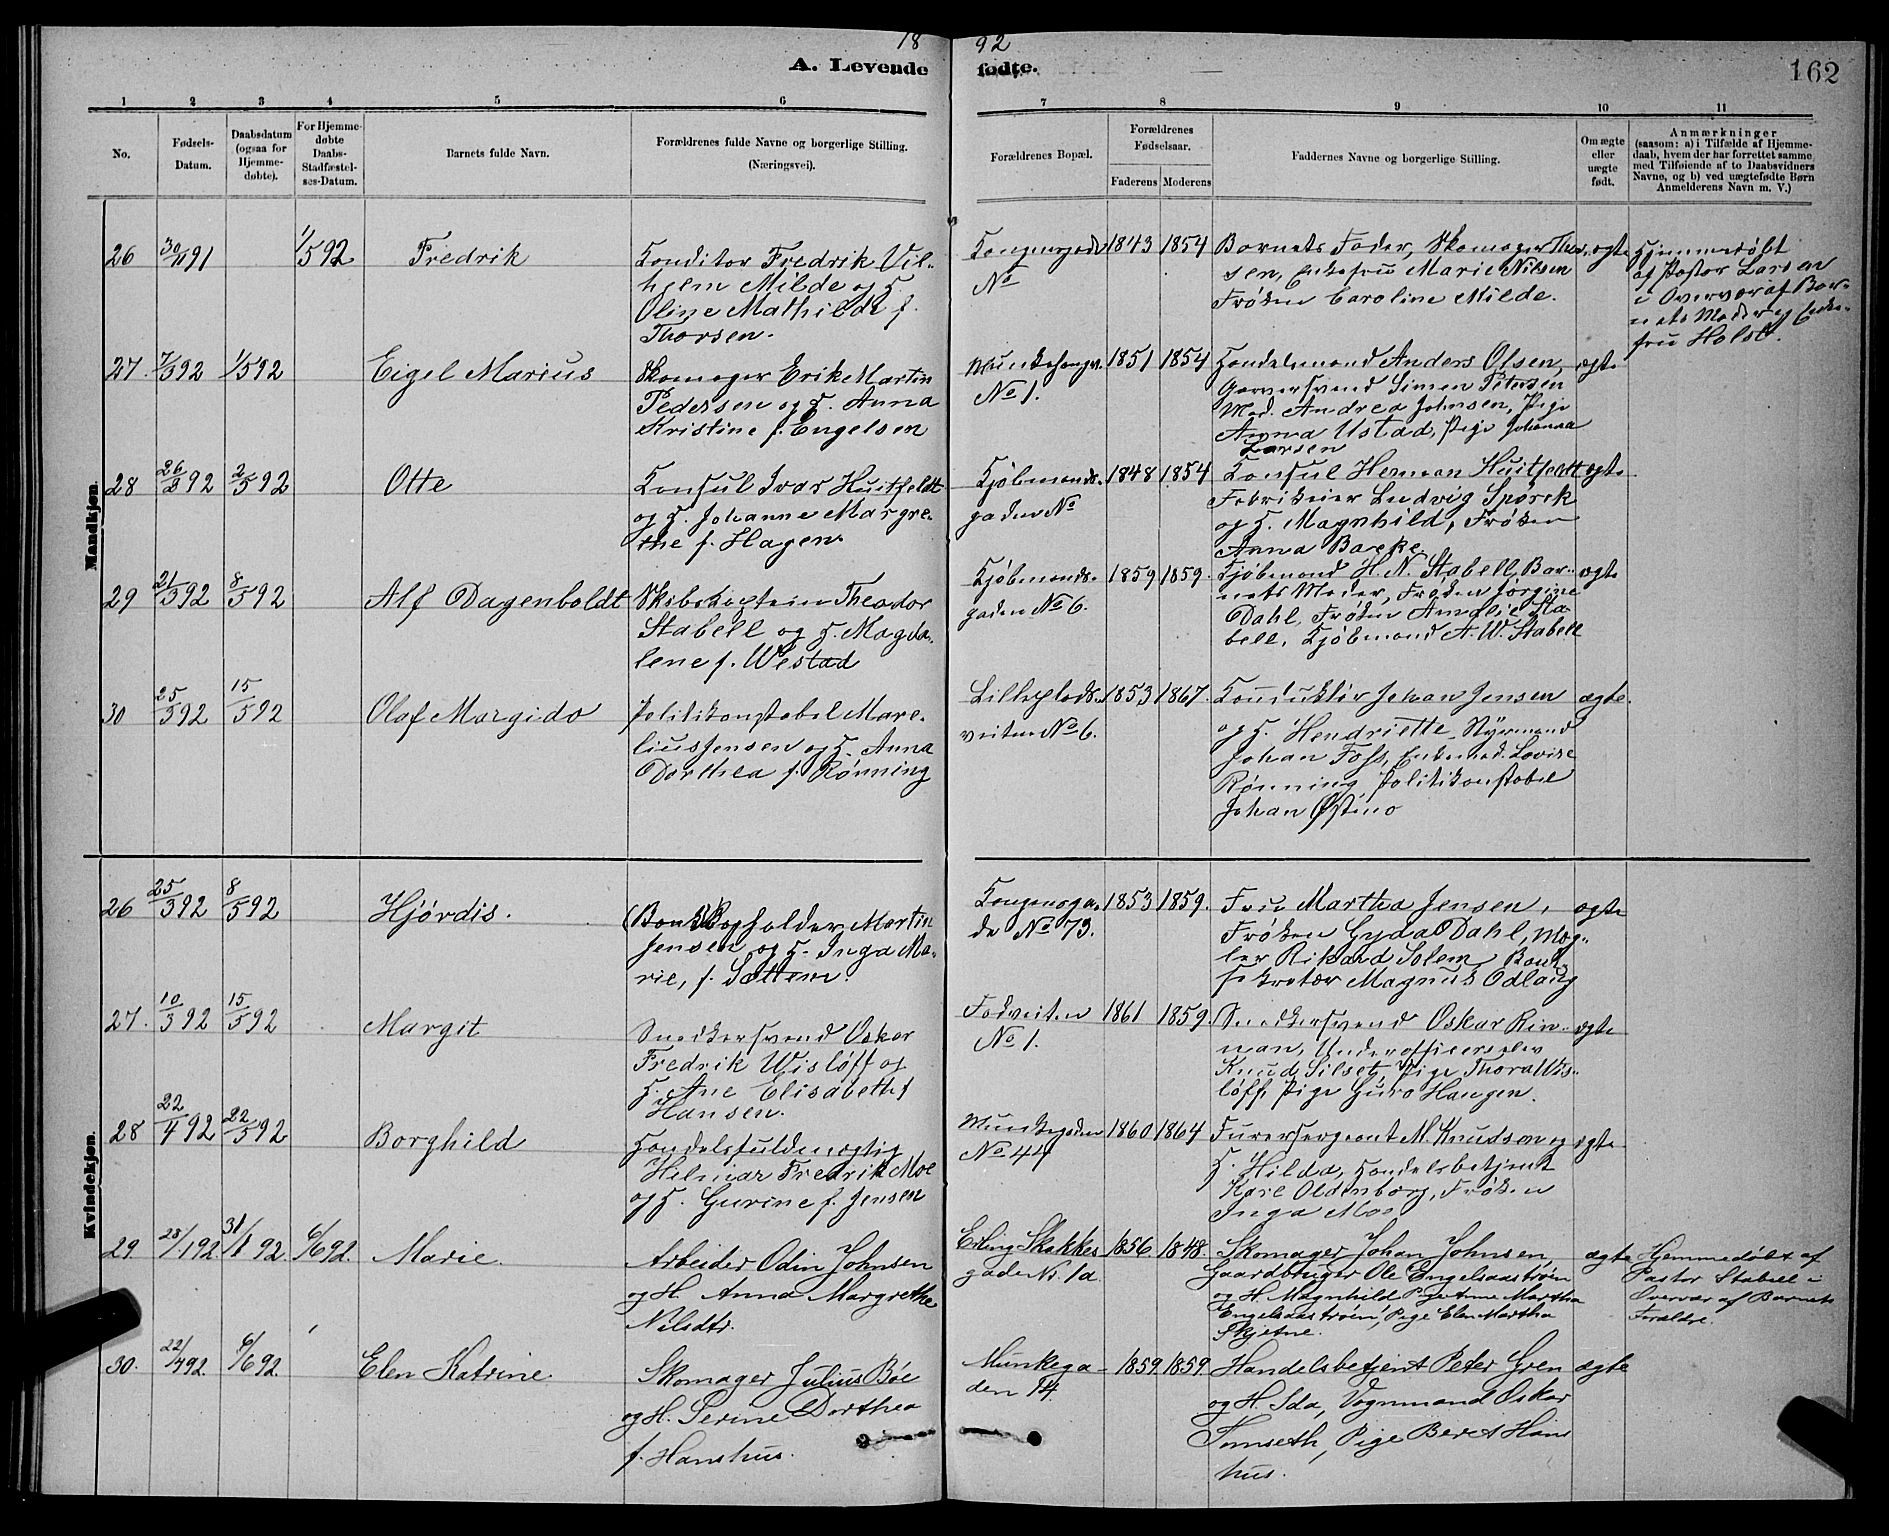 18 92
A. Levende fødte.
162
1 2 3 4 5 6 7 8 9 10 11
No.
Fødsels-
Datum.
Daabsdatum
(ogsaa for
Hjemme-
døbte).
For Hjemme-
døbte
Daabs-
Stadfæstel-
ses-Datum.
Barnets fulde Navn.
Forældrenes fulde Navne og borgerlige Stilling.
(Næringsvei).
Forældrenes Bopæl.
Forældrenes
Fødselsaar.
Faderens Moderens
Faddernes Navne og borgerlige Stilling.
Om ægte
eller
uægte
født.
Anmærkninger
(saasom: a) i Tilfælde af Hjemme-
daab, hvem der har forrettet samme,
med Tilføiende af to Daabsvidners
Navne, og b) ved uægtefødte Børn
Anmelderens Navn m. V.)
Mandkjøn.
26 30/11 91 1/5 92 Fredrik
Konditor Fredrik Vil-
helm Milde og H.
Oline Mathilde f.
Thorsen.
Kongensgade
No
1843 1854
Barnets Fader, Skomager Thor-
sen, Enkefru Marie Nilsen
Frøken Caroline Milde.
ægte
Hjemmedøbt
af Pastor Larsen
i Overvær af Bar-
nets Moder og Enke-
fru Holst.
27. 7/3 92 1/5 92 Eigel Marius
Skomager Erik Martin
Pedersen og H. Anna
Kristine f. Engelsen
No 1.
1851 1854
Handelsmand Anders Olsen,
Garversvend Simen Petersen
Mad. Andrea Johnsen, Pige
Anna Ustad, Pige Johanna
Larsen
ægte
28 26/3 92 2/5 92 Otte
Konsul Ivar Huitfeldt
og H. Johanne Margre-
the f. Hagen.
Kjøbmands-
gaden No
1848 1854
Konsul Herman Huitfeldt
Fabrikeier Ludvig Sporck
og H. Magnhild, Frøken
Anna Barke.
ægte
29 21/3 92 8/5 92 Alf Dagenboldt
Skibskaptein Theodor
Stabell og H. Magda-
lene f. Westad
Kjøbmands-
gaden No 6.
1859 1859.
Kjøbmand H. N. Stabell, Bar-
nets Moder, Frøken Jørgine
Dahl, Frøken Amalie Sta-
bell, Kjøbmand A. W. Stabell
ægte
30 25/3 92 15/5 92 Olaf Margido
Politikonstabel Mare-
lius Jensen og H. Anna
Dorthea f. Rønning
veiten No 6.
1853 1867.
Konduktør Johan Jensen
og H. Hendriette, Styrmand
Johan Foss, Enkemad. Lovise
Rønning, Politikonstabel
Johan Østmo
ægte.
Kvindekjøn.
26 25/3 92 8/5 92 Hjørdis.
(Bank)Bogholder Martin
Jensen og H. Inga Ma-
rie, f. Sættem.
Kongensga-
de No 73.
1853 1859.
Fru Martha Jensen,
Frøken Gyda Dahl, Mæg-
ler Rikard Solem, Bank-
sekretær Magnus Odlaug
ægte
27. 10/3 92 15/5 92 Margit
Snedkersvend Oskar
Fredrik Wisløff og
H. Ane Elisabeth f.
Hansen.
Fadveiten
No 1.
1861 1859.
Snedkersvend Oskar Rin-
man, Underofficerselev
Knud Silset, Pige Thora Wis-
løff, Pige Guro Haugen.
ægte
28 22/4 92 22/5 92 Borghild
Handelsfuldmægtig
Hilmar Fredrik Moe
og H. Gurine f. Jensen
Munkegaden
No 44
1860 1864
Furersergeant M. Knudson og
H. Hilda, Handelsbetjent
Karl Oldenborg, Frøken
Inga Moe
ægte
29. 28/1 92 31/1 92. 6/6 92. Marie.
Arbeider Odin Johnsen
og H. Anna Margrethe
Nilsdtr.
Erling Skakkes
gade Nr. 1a
1856 1848.
Skomager Johan Johnsen,
Gaardbruger Ole Engelsaastrøen
og H. Magnhild Pige Anne Martha
Engelsaastrøen, Pige Elen Martha
Skjetne.
ægte
Hemmedøbt af
Pastor Stabell i
Overvær af Barnets
Forældre.
30. 22/4 92. 6/6 92. Elen Katrine
Skomager Julius Bøe
og H. Serine Dorthea
f. Hanshus.
Munkega-
den 74.
1859 1859
Handelsbetjent Peter Gren
og H. Ida, Vognmand Oskar
Tomseth, Pige Beret Hans
hus.
ægte